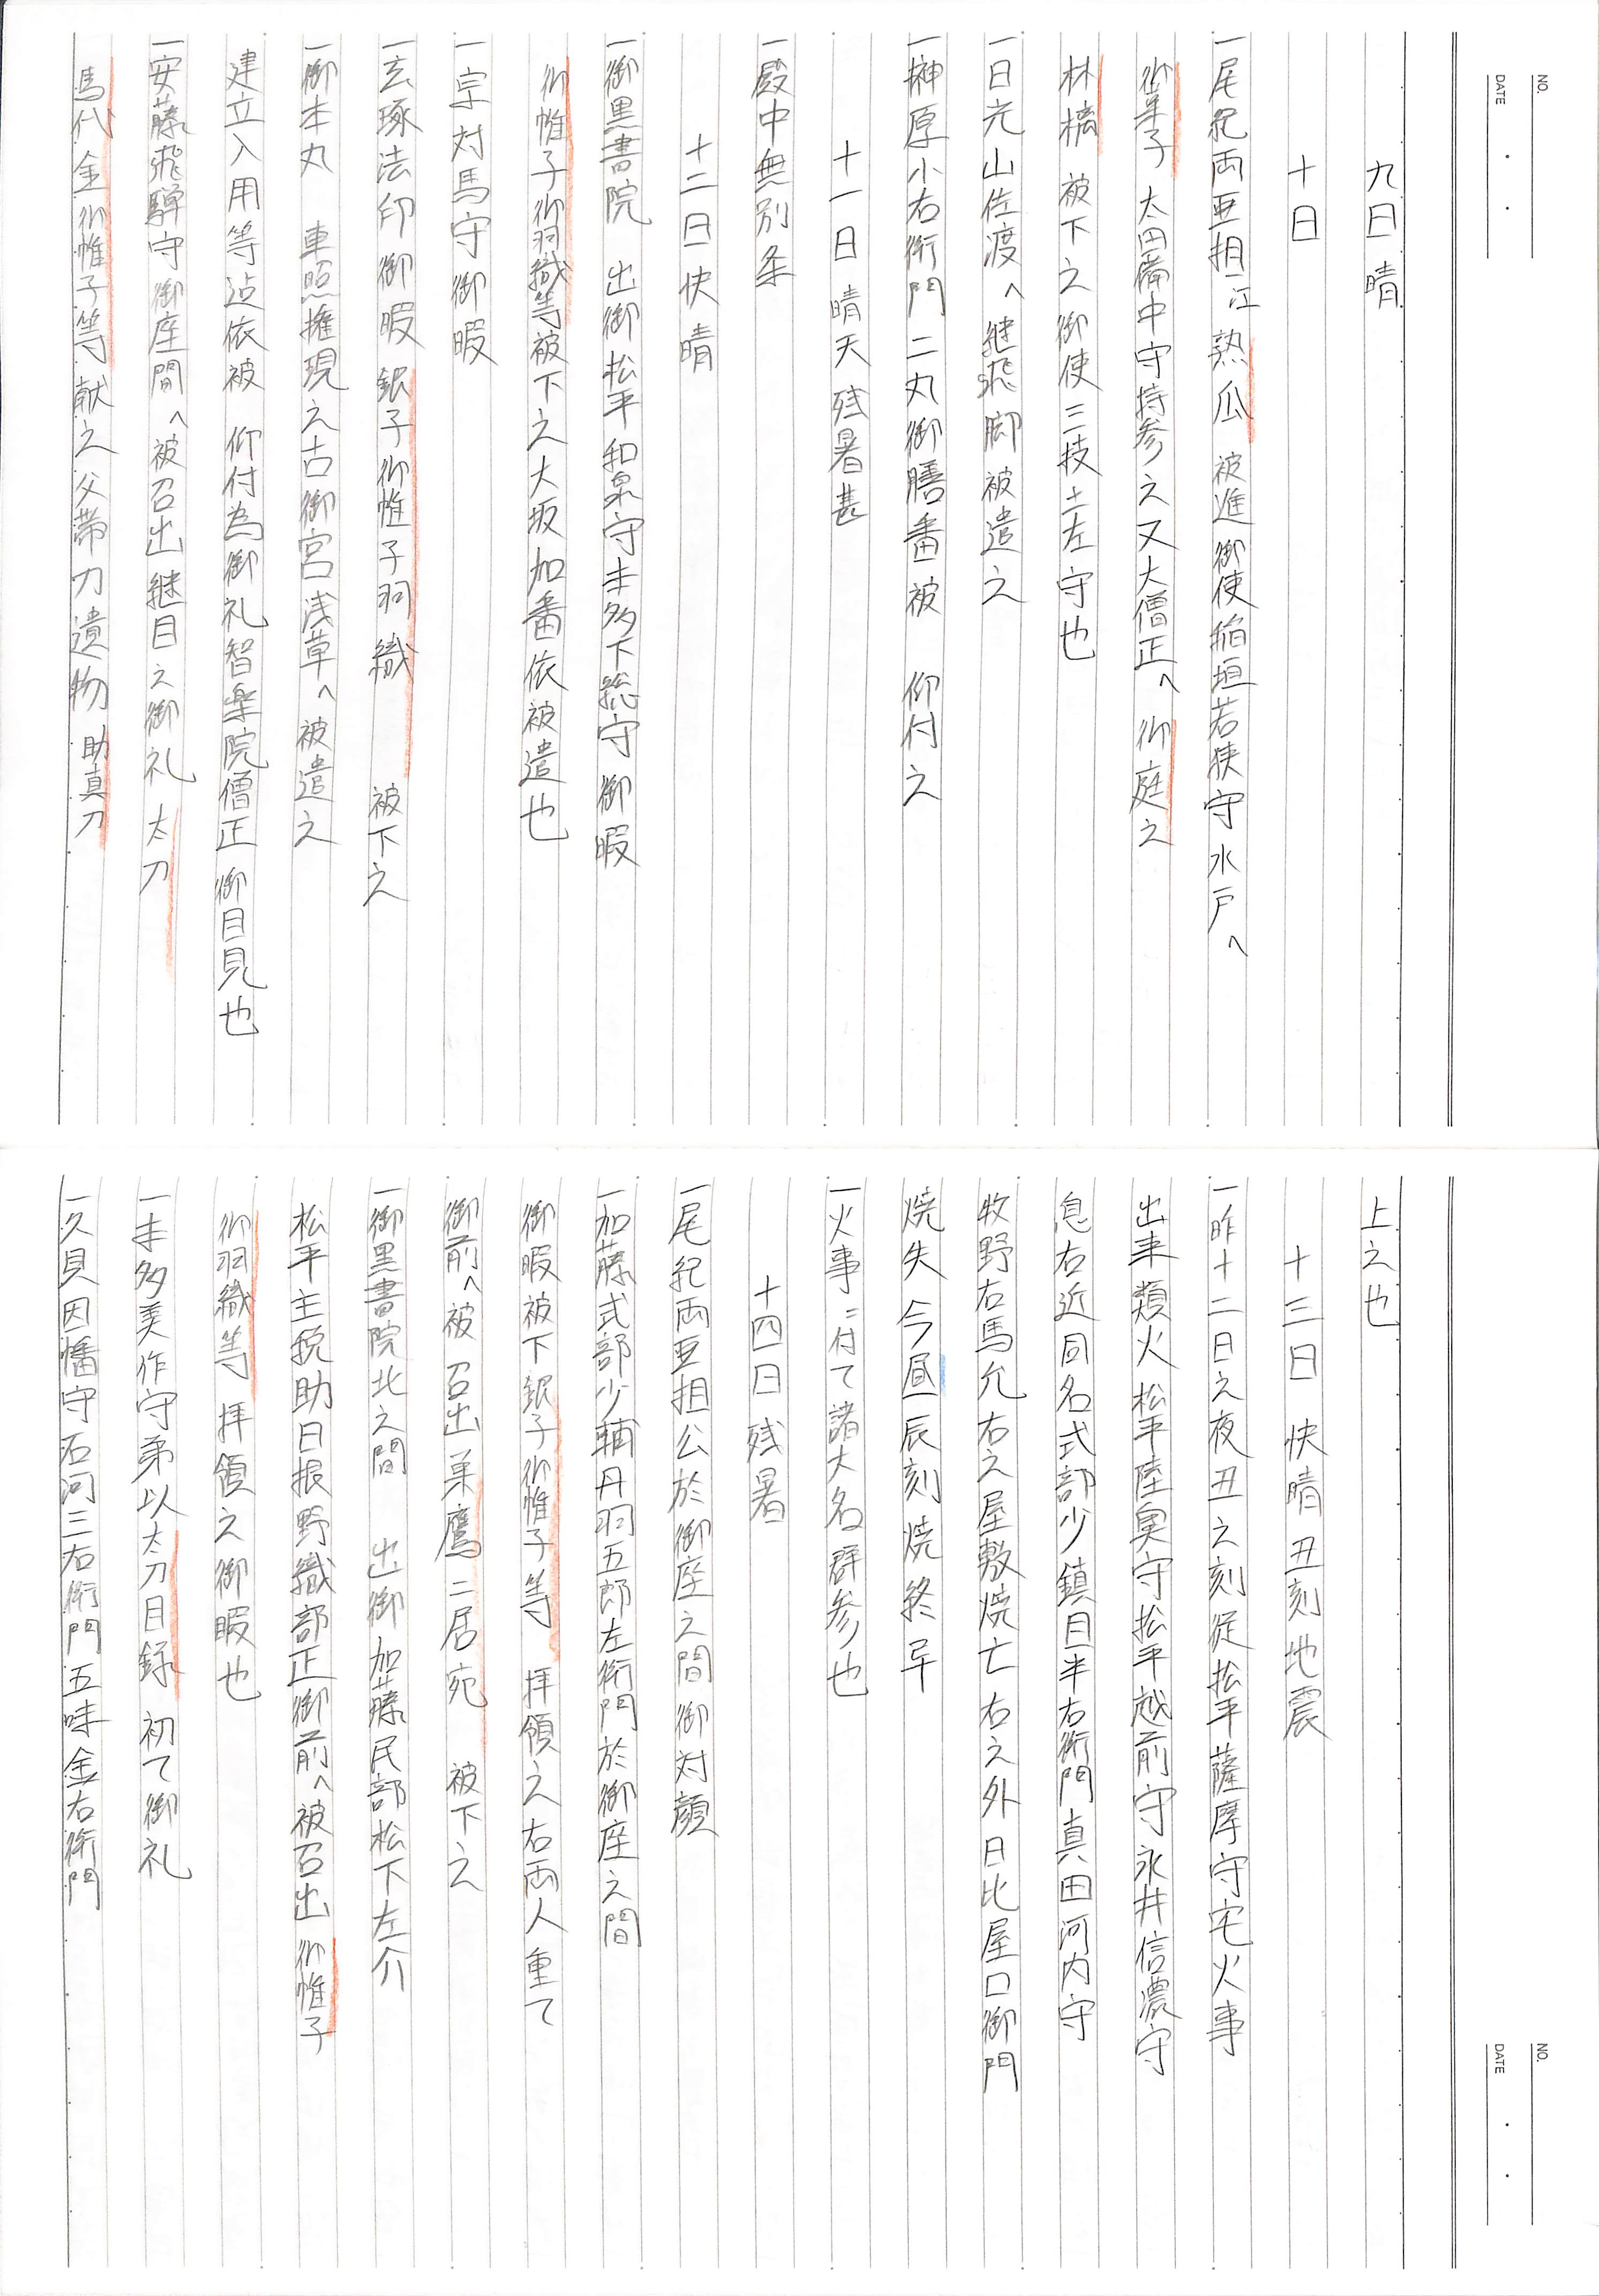 NO.
DATE
九日 晴
十日
一尾紀両亜相江 熟瓜 被進 御使稲垣若狭守水戸へ
御菓子 太田備中守持参之又大僧正へ 御庭之
林檎 被下之御使三枝土左守也
一日光山佐渡へ 継飛脚 被遣之
一榊原小右衛門二丸御膳番被 仰付之
十一日 晴天残暑甚
一殿中無別条
十二日 快晴
一御黒書院 出御 松平和泉守 本多下総守 御暇
御帷子御羽織等被下之大坂加番依被遣也
一宗対馬守御暇
一玄琢法印御暇 銀子御帷子羽織 被下之
一御本丸 東照権現之古御宮浅草へ被遣之
建立入用等迠依被 仰付為御礼智楽院僧正御目見也
一安藤飛騨守御座間へ被召出 継目之御礼 太刀
馬代金御帷子等献之父帯刀遺物 助真刀
上之也
十三日 快晴 丑刻地震
一昨十二日之夜丑之刻従松平薩摩守宅火事
出来 類火 松平陸奥守松平越前守永井信濃守
息右近同名式部少鎮目半右衛門真田河内守
牧野右馬允右之屋敷焼亡右之外日比屋口御門
焼失今昼辰刻焼終早
一火事ニ付て諸大名群参也
十四日 残暑
一尾紀両亜相公於御座之間御対顔
一加藤式部少輔丹羽五郎左衛門於御座之間
御暇被下銀子御帷子等 拝領之右両人重て
御前へ被召出巣鷹二居宛 被下之
一御黒書院北之間 出御 加藤民部松下左介
松平主税助日根野織部正御前へ被召出 御帷子
御羽織等 拝領之御暇也
一本多美作守弟以太刀目録 初て御礼
一久貝因幡守石河三右衛門五味金右衛門
NO.
DATE